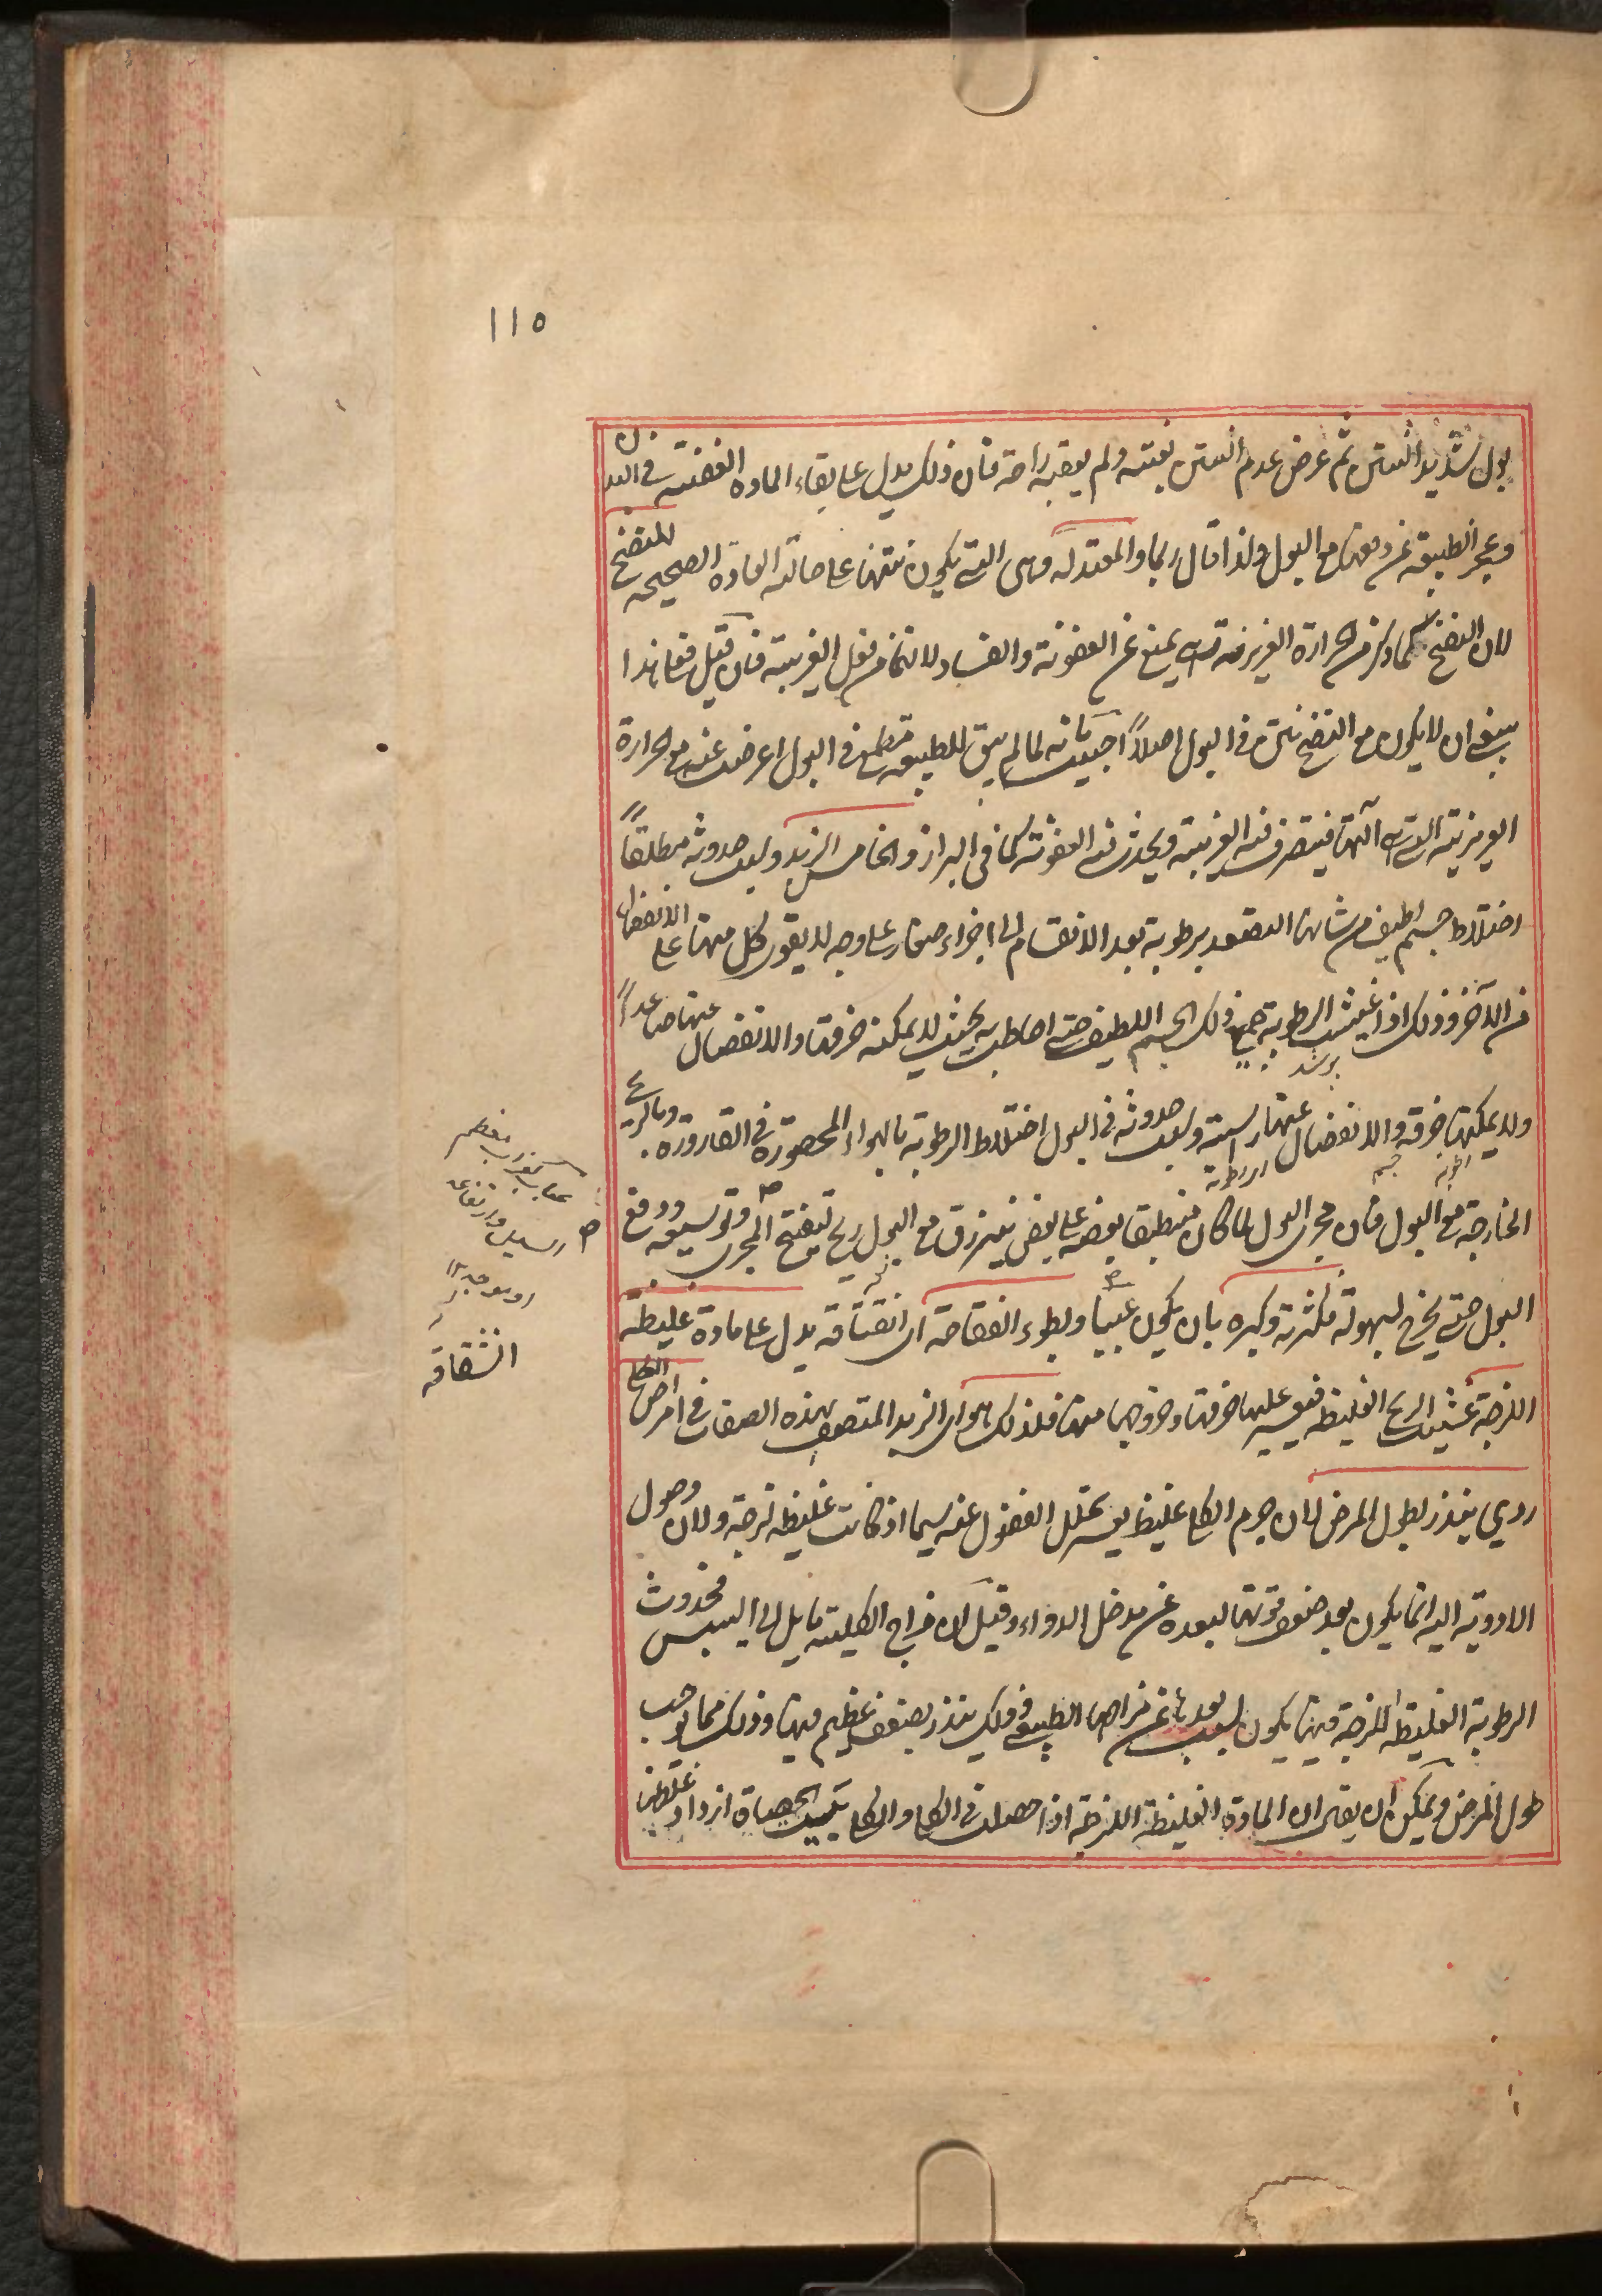 ١١٥
بول شديد النتن ثم عرض عدم النتن بغتة ولم يعقبه راحة فان ذلك يدل على بقاء المادة العفنة فى البدن
وعجز الطبيعة عن دفعها مع البول ولذا قال ريحا والمعتدلة وهى التى يكون نتنها على حالة العادة الصحيحه للنضج
لان النضج كما ذكر من الحرارة الغريزية التى تمنع عن العفونة والفساد لا نتنا من فعل الغريبة فان قيل فعلى هذا
ينبغى ان لا يكون مع النضج نتن فى البول اصلاً اجيب بانه لما لم يبق للطبيعة مطمع فى البول اعرضت عنه مع الحرارة
الغريزية التى آلتها فيتصرف فيه الغريبة ويحدث فيه العفونة كما فى البراز والخامس الزبد وسبب حدوثه مطلقاً
اختلاط جسم لطيف من شانه التصعد برطوبة بعد الانقسام الى اجزاء صغار على وجه لا يقوى كل منها على الانفصال
من الآخر وذلك اذا غشيت الرطوبة جميع ذلك الجسم اللطيف حتى احاطت به بحيث لا يمكنه خرقها والانفصال عنها صاعداً
ولا يمكنها خرقه والانفصال عنها راسبة وسبب حدوثه فى البول اختلاط الرطوبة بالهواء المحصورة فى القارورة وبالريح
الخارجة مع البول فان مجرى البول لما كان منطبقا بعضه على بعض ينزرق مع البول ريح لتفتح المجرى وتوسيعه ودفع
البول حتى يخرج بسهولة فكثرته وكبره بان يكون عببيا وبطوء انفقاصه اى انفقاقه يدل على مادة غليظة
اللزجة غشيت الريح الغليظه فيعسر عليها خرقها وخروجها منها فلذلك هو اى الزبد المتصف بهذه الصفات فى امراض الكلى
ردي ينذر بطول المرض لان جرم الكلى غليظ يعسر تحلل الفضول عنه سيما اذ كانت غليظه لزجة ولان وصول
الادوية اليه انما يكون بعد ضعف قوتها لبعده عن مدخل الدواء وقيل لان مزاج الكلية مايل الى اليبس فحدوث
الرطوبة الغليظه اللزجة فيها يكون لسبب بعد يا عن مزاجها الطبيعى وذلك ينذر بضعف عظيم فيها وذلك مما يوجب
طول المرض ويمكن ان يقال ان المادة الغليظة اللزجة اذا حصلت فى الكلى والكلى يتكيف الحصاة ازداد غلظها
عباب كغراب معظم
السيل وارتفاعه
او موجه ١٢
انشقاقه